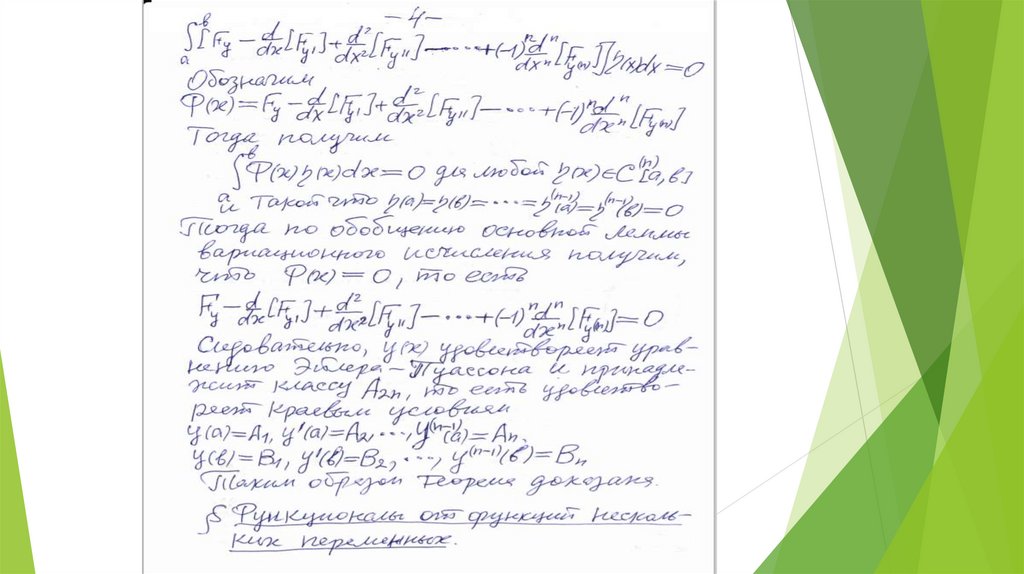 – 4 –
∫ₐᵇ [F_y − d/dx [F_y'] + d²/dx² [F_y''] − ⋯ + (−1)ⁿ dⁿ/dxⁿ [F_y⁽ⁿ⁾]] η(x)dx = 0
Обозначим
Φ(x) = F_y − d/dx [F_y'] + d²/dx² [F_y''] − ⋯ + (−1)ⁿ dⁿ/dxⁿ [F_y⁽ⁿ⁾]
Тогда получим
∫ₐᵇ Φ(x)η(x)dx = 0 для любой η(x) ∈ C⁽ⁿ⁾[a,в]
и такой что η(a)=η(в)= ⋯ =η⁽ⁿ⁻¹⁾(a)=η⁽ⁿ⁻¹⁾(в)=0
Тогда по обобщению основной леммы
вариационного исчисления получим,
что Φ(x) = 0, то есть
F_y − d/dx [F_y'] + d²/dx² [F_y''] − ⋯ + (−1)ⁿ dⁿ/dxⁿ [F_y⁽ⁿ⁾] = 0
Следовательно, y(x) удовлетворяет урав-
нению Эйлера – Пуассона и принадле-
жит классу A₂ₙ, то есть удовлетво-
ряет краевым условиям
y(a)=A₁, y'(a)=A₂, ⋯, y⁽ⁿ⁻¹⁾(a)=Aₙ.
y(в)=B₁, y'(в)=B₂, ⋯, y⁽ⁿ⁻¹⁾(в)=Bₙ
Таким образом теорема доказана.
§ Функционалы от функций несколь-
ких переменных.